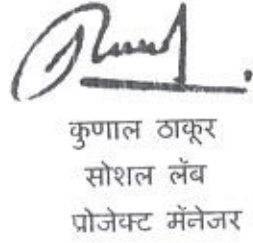 कुणाल ठाकूर
सोशल लॅब
प्रोजेक्ट मॅनेजर